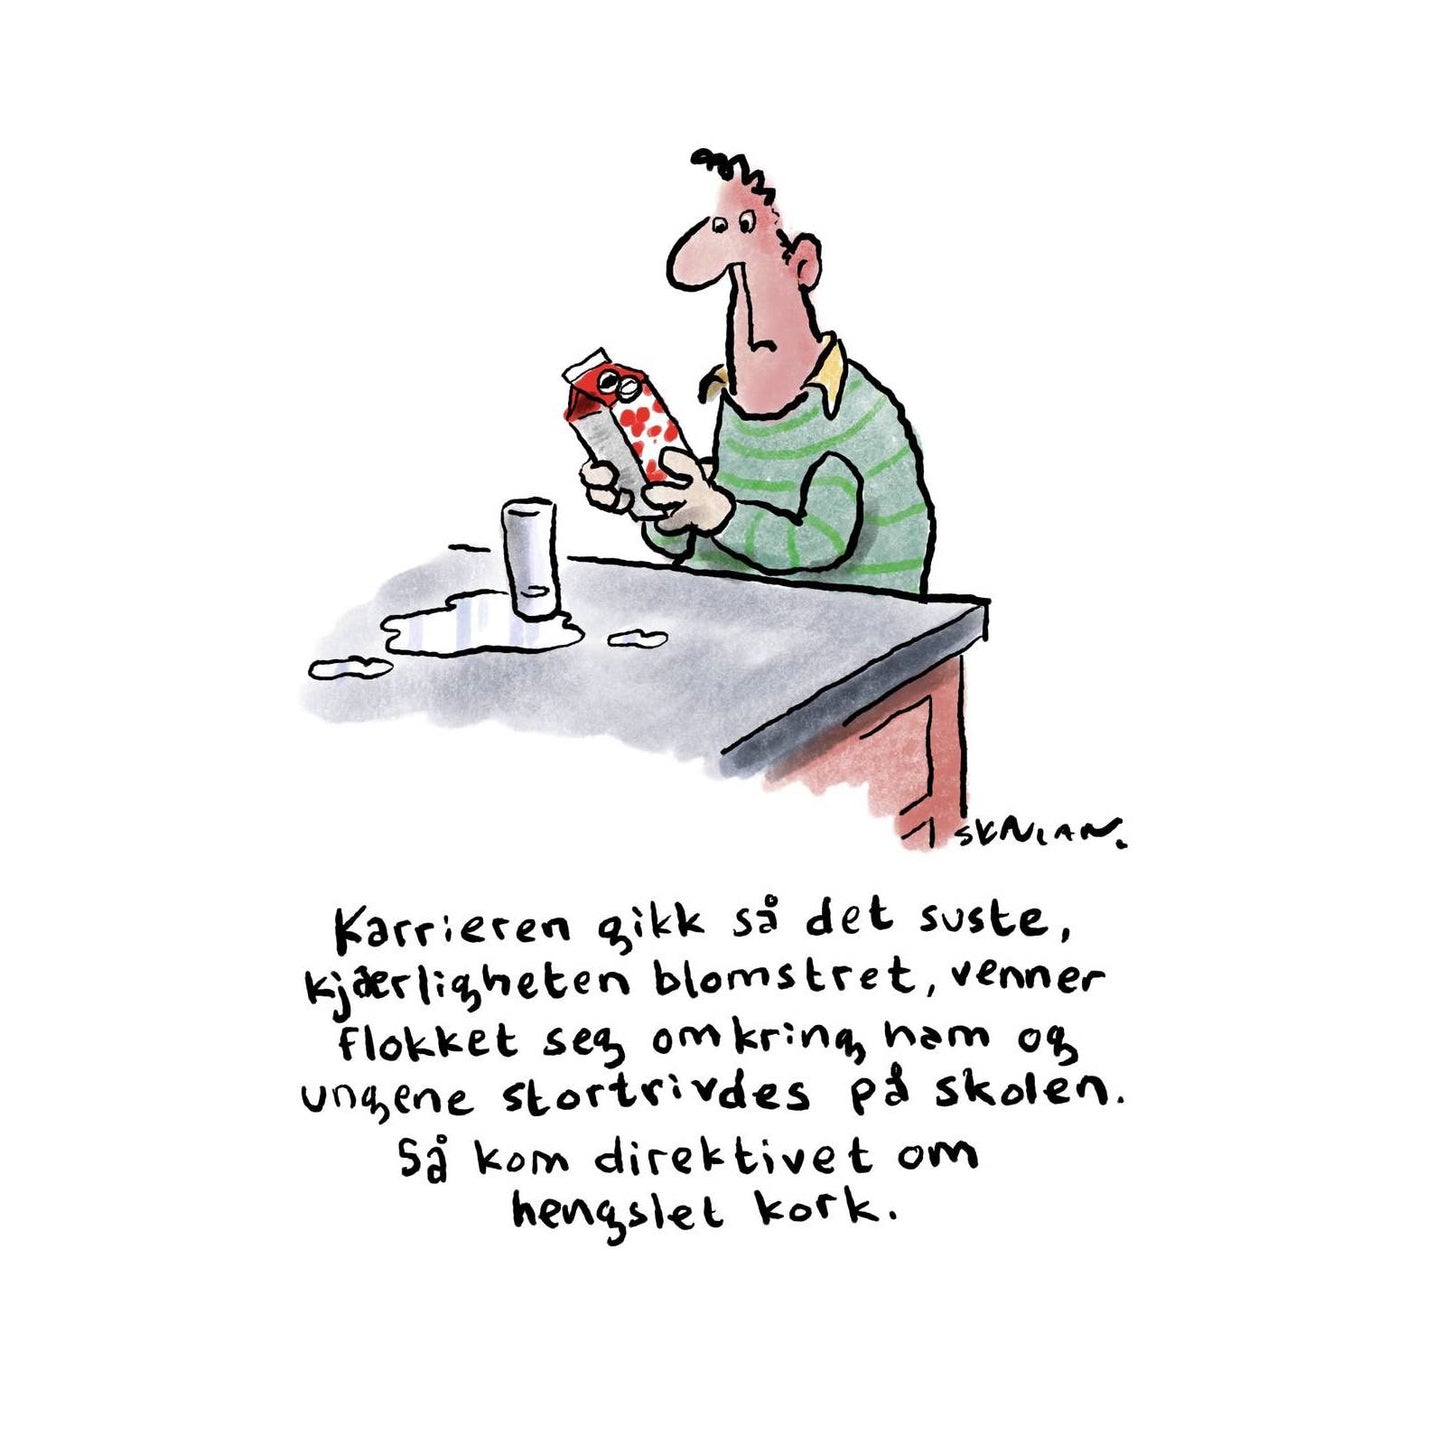 SKNIAN.
Karrieren gikk så det suste,
kjærligheten blomstret, venner
flokket seg omkring ham og
ungene stortrivdes på skolen.
Så kom direktivet om
hengslet kork.